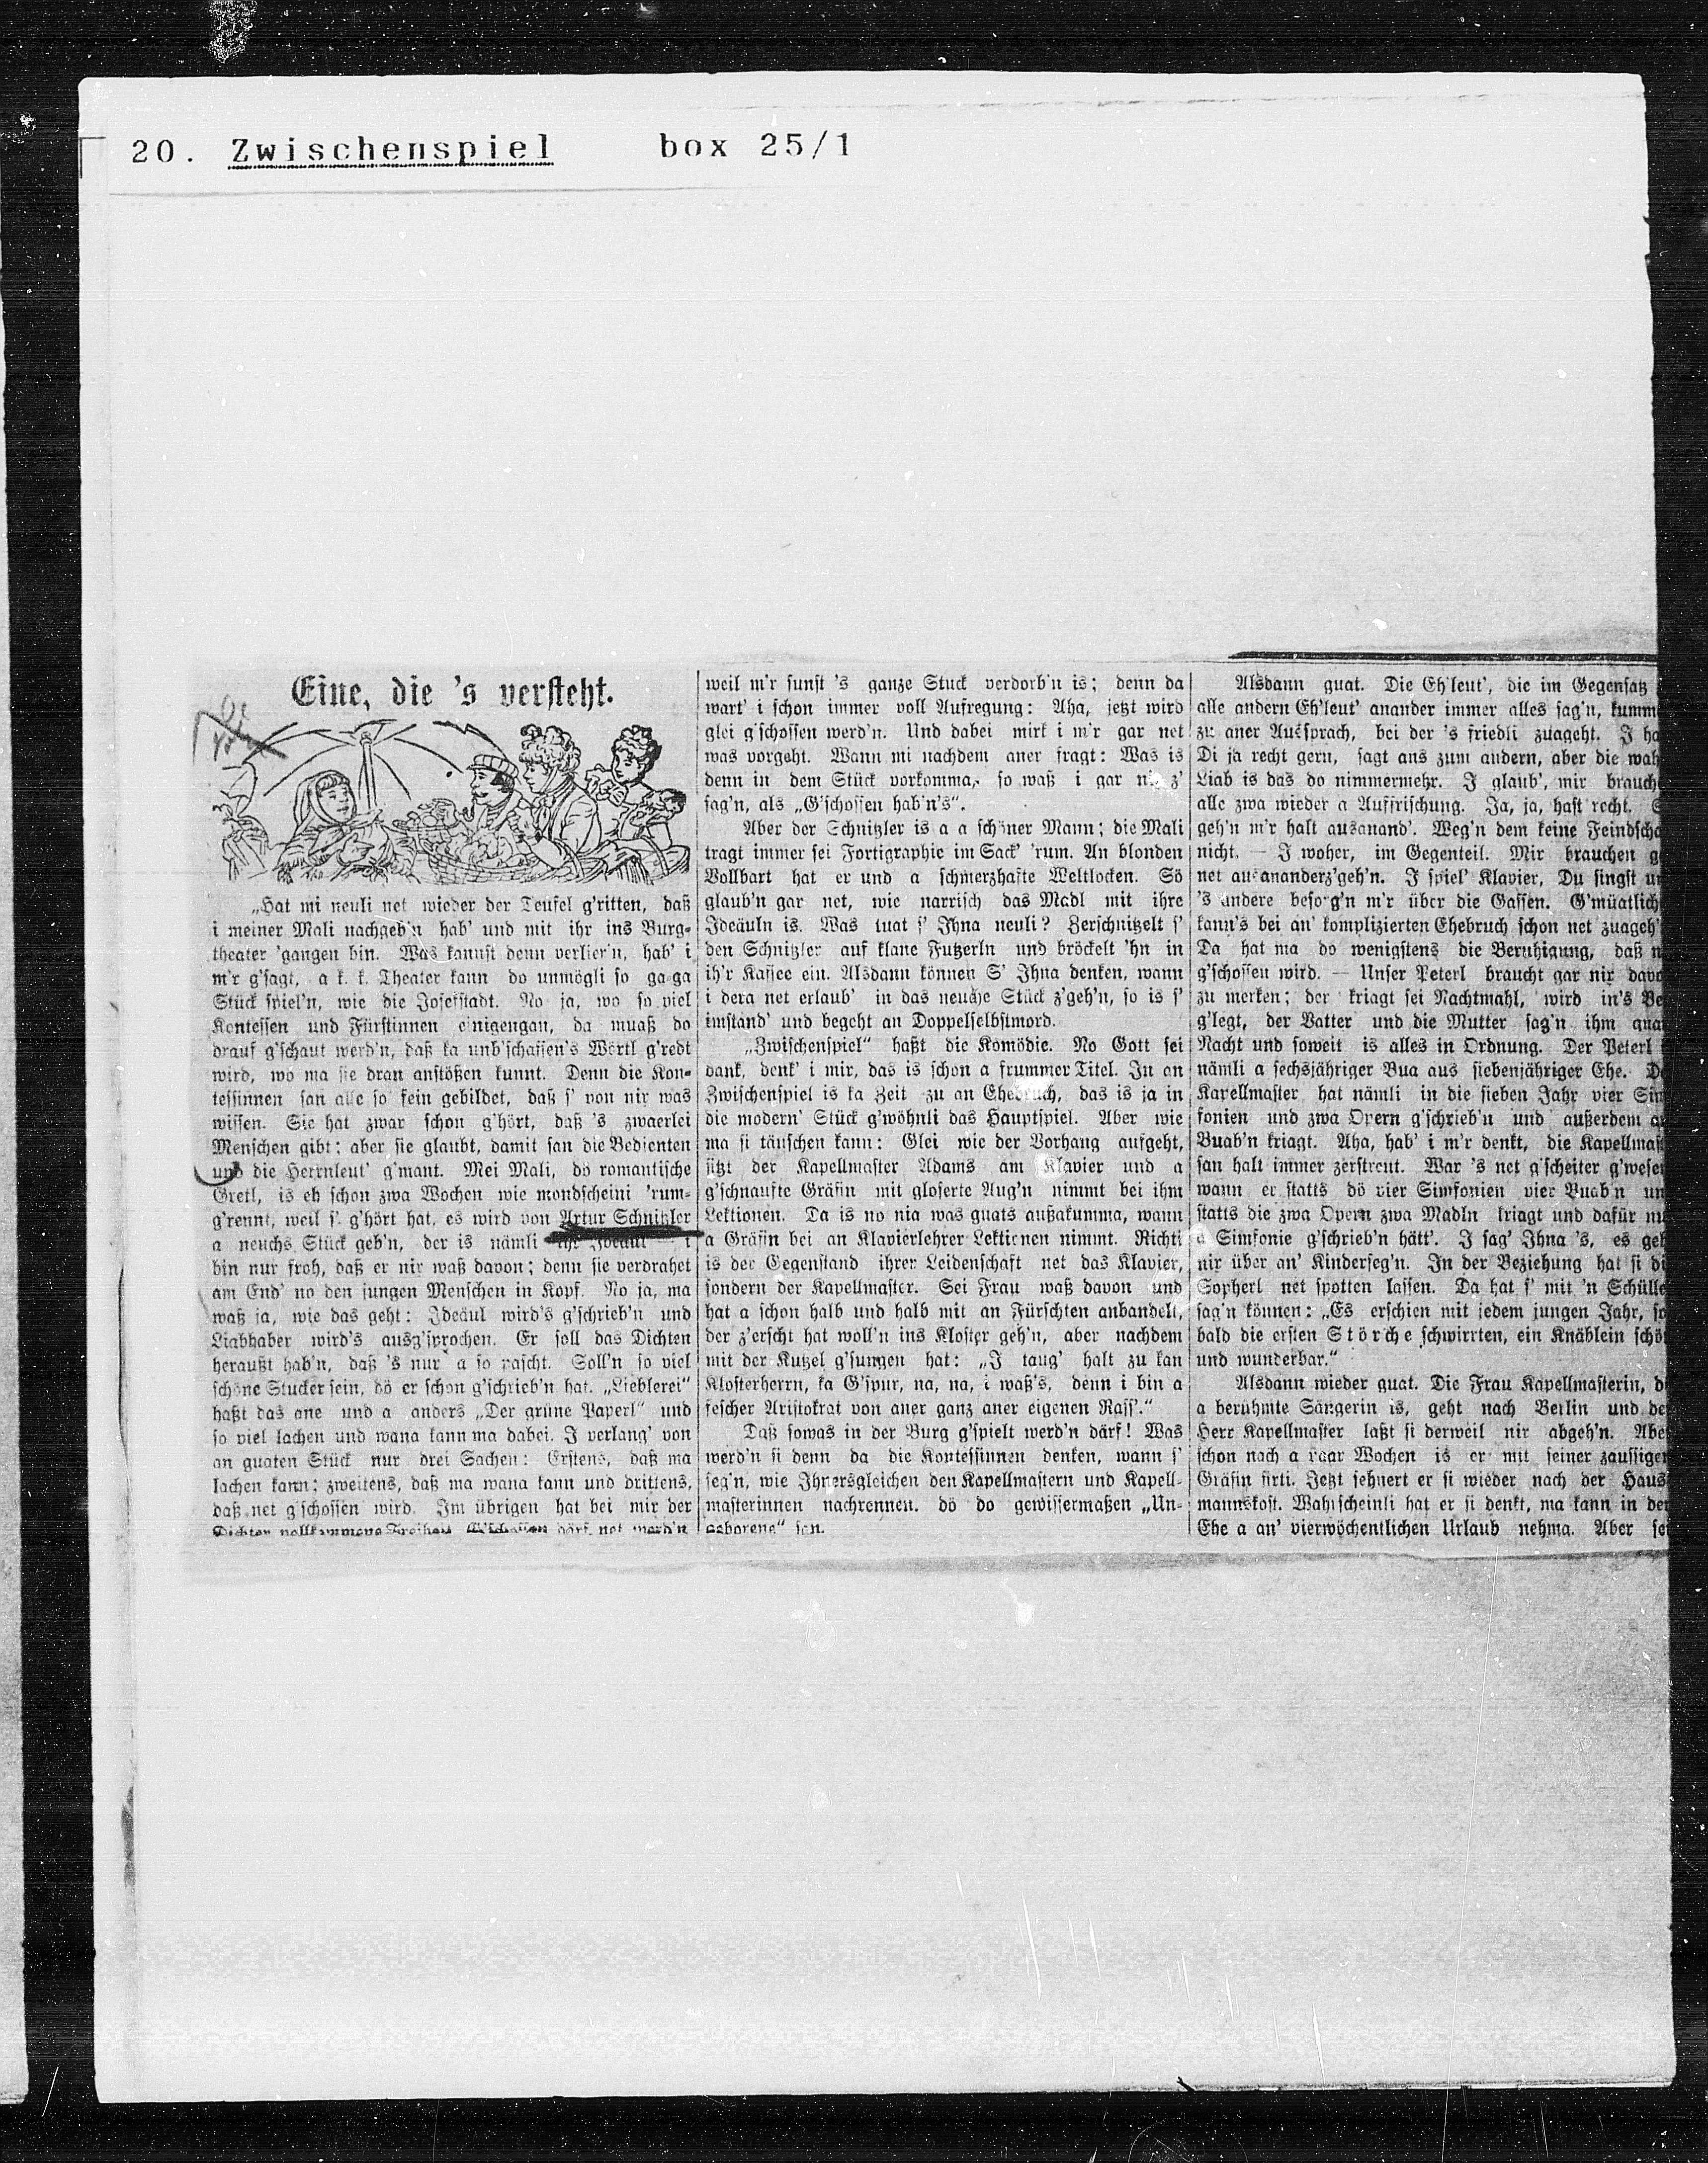 20. Zwischenspiel box 25/1
Eine, die 's versteht.
„Hat mi neuli net wieder der Teufel g'ritten, daß
i meiner Mali nachgeb'n hab' und mit ihr ins Burg-
theater 'gangen bin. Was kannst denn verlier'n, hab' i
m'r g'sagt, a k. k. Theater kann do unmögli so ga-ga
Stück spiel'n, wie die Josefstadt. No ja, wo so viel
Kontessen und Fürstinnen einigengan, da muaß do
drauf g'schaut werd'n, daß ka unb'schaffen's Wörtl g'redt
wird, wo ma sie dran anstößen kunnt. Denn die Kon-
tessinnen san alle so fein gebildet, daß s' von nix was
wissen. Sie hat zwar schon g'hört, daß 's zwaerlei
Menschen gibt; aber sie glaubt, damit san die Bedienten
und die Herrnleut' g'mant. Mei Mali, dö romantische
Gretl, is eh schon zwa Wochen wie mondscheini 'rum-
g'rennt, weil s' g'hört hat, es wird von Artur Schnitzler
a neuchs Stück geb'n, der is nämli ihr Ideäul — i
bin nur froh, daß er nix waß davon; denn sie verdrahet
am End' no den jungen Menschen in Kopf. No ja, ma
waß ja, wie das geht: Ideäul wird's g'schrieb'n und
Liabhaber wird's ausg'sprochen. Er soll das Dichten
heraußt hab'n, daß 's nur a so pascht. Soll'n so viel
schöne Stucker sein, dö er schon g'schrieb'n hat. „Lieblerei"
haßt das ane und a anders „Der grüne Paperl" und
so viel lachen und wana kann ma dabei. I verlang' von
an guaten Stück nur drei Sachen: Erstens, daß ma
lachen kann; zweitens, daß ma wana kann und drittens,
daß net g'schossen wird. Im übrigen hat bei mir der
Dichter vollkommene Freiheit. G'schossen därf net werd'n
weil m'r sunst 's ganze Stuck verdorb'n is; denn da
wart' i schon immer voll Aufregung: Aha, jetzt wird
glei g'schossen werd'n. Und dabei mirk i m'r gar net
was vorgeht. Wann mi nachdem aner fragt: Was is
denn in dem Stück vorkomma, so waß i gar nix z'
sag'n, als „G'schossen hab'n's".
Aber der Schnitzler is a a schöner Mann; die Mali
tragt immer sei Fortigraphie im Sack' 'rum. An blonden
Vollbart hat er und a schmerzhafte Weltlocken. Sö
glaub'n gar net, wie narrisch das Madl mit ihre
Ideäuln is. Was tuat s' Ihna neuli? Zerschnitzelt s'
den Schnitzler auf klane Futzerln und bröckelt 'hn in
ih'r Kaffee ein. Alsdann können S' Ihna denken, wann
i dera net erlaub' in das neuche Stück z'geh'n, so is s'
imstand' und begeht an Doppelselbstmord.
„Zwischenspiel" haßt die Komödie. No Gott sei
dank, denk' i mir, das is schon a frummer Titel. In an
Zwischenspiel is ka Zeit zu an Ehebruch, das is ja in
die modern' Stück g'wöhnli das Hauptspiel. Aber wie
ma si täuschen kann: Glei wie der Vorhang aufgeht,
sitzt der Kapellmaster Adams am Klavier und a
g'schnaufte Gräfin mit gloserte Aug'n nimmt bei ihm
Lektionen. Da is no nia was guats außakumma, wann
a Gräfin bei an Klavierlehrer Lektionen nimmt. Richti
is der Gegenstand ihrer Leidenschaft net das Klavier,
sondern der Kapellmaster. Sei Frau waß davon und
hat a schon halb und halb mit an Fürschten anbandelt,
der z'erscht hat woll'n ins Kloster geh'n, aber nachdem
mit der Kutzel g'sungen hat: „I taug' halt zu kan
Klosterherrn, ka G'spur, na, na, i waß's, denn i bin a
fescher Aristokrat von aner ganz aner eigenen Rass'."
Daß sowas in der Burg g'spielt werd'n därf! Was
werd'n si denn da die Kontessinnen denken, wann s'
seg'n, wie Ihnersgleichen den Kapellmastern und Kapell-
masterinnen nachrennen, dö do gewissermaßen „Un-
geborene" san.
Alsdann guat. Die Eh'leut', die im Gegensatz
alle andern Eh'leut' anander immer alles sag'n, kumm
zu aner Aussprach, bei der 's friedli zuageht. I ha
Di ja recht gern, sagt ans zum andern, aber die wah
Liab is das do nimmermehr. I glaub', mir brauch
alle zwa wieder a Auffrischung. Ja, ja, hast recht,
geh'n m'r halt ausanand'. Weg'n dem keine Feindscha
nicht. — I woher, im Gegenteil. Mir brauchen g
net ausananderz'geh'n. I spiel' Klavier, Du singst un
's andere besorg'n m'r über die Gassen. G'müatlich
kann's bei an' komplizierten Ehebruch schon net zuageh'
Da hat ma do wenigstens die Beruhigung, daß n
g'schossen wird. — Unser Peterl braucht gar nix davo
zu merken; der kriagt sei Nachtmahl, wird in's Be
g'legt, der Vatter und die Mutter sag'n ihm gua
Nacht und soweit is alles in Ordnung. Der Peterl
nämli a sechsjähriger Bua aus siebenjähriger Ehe. De
Kapellmaster hat nämli in die sieben Jahr vier Sim
fonien und zwa Opern g'schrieb'n und außerdem an
Buab'n kriagt. Aha, hab' i m'r denkt, die Kapellmast
san halt immer zerstreut. War 's net g'scheiter g'wesen
wann er statts dö vier Simfonien vier Buab'n un
statts die zwa Opern zwa Madln kriagt und dafür nu
a Simfonie g'schrieb'n hätt'. I sag' Ihna 's, es geh
nix über an' Kinderseg'n. In der Beziehung hat si di
Sopherl net spotten lassen. Da hat s' mit 'n Schülle
sag'n können: „Es erschien mit jedem jungen Jahr, so
bald die ersten Störche schwirrten, ein Knäblein schön
und wunderbar."
Alsdann wieder guat. Die Frau Kapellmasterin, di
a berühmte Sängerin is, geht nach Berlin und de
Herr Kapellmaster laßt si derweil nix abgeh'n. Abe
schon nach a paar Wochen is er mit seiner zaussigen
Gräfin firti. Jetzt sehnert er si wieder nach der Haus
mannskost. Wahrscheinli hat er si denkt, ma kann in der
Ehe a an' vierwöchentlichen Urlaub nehma. Aber sei